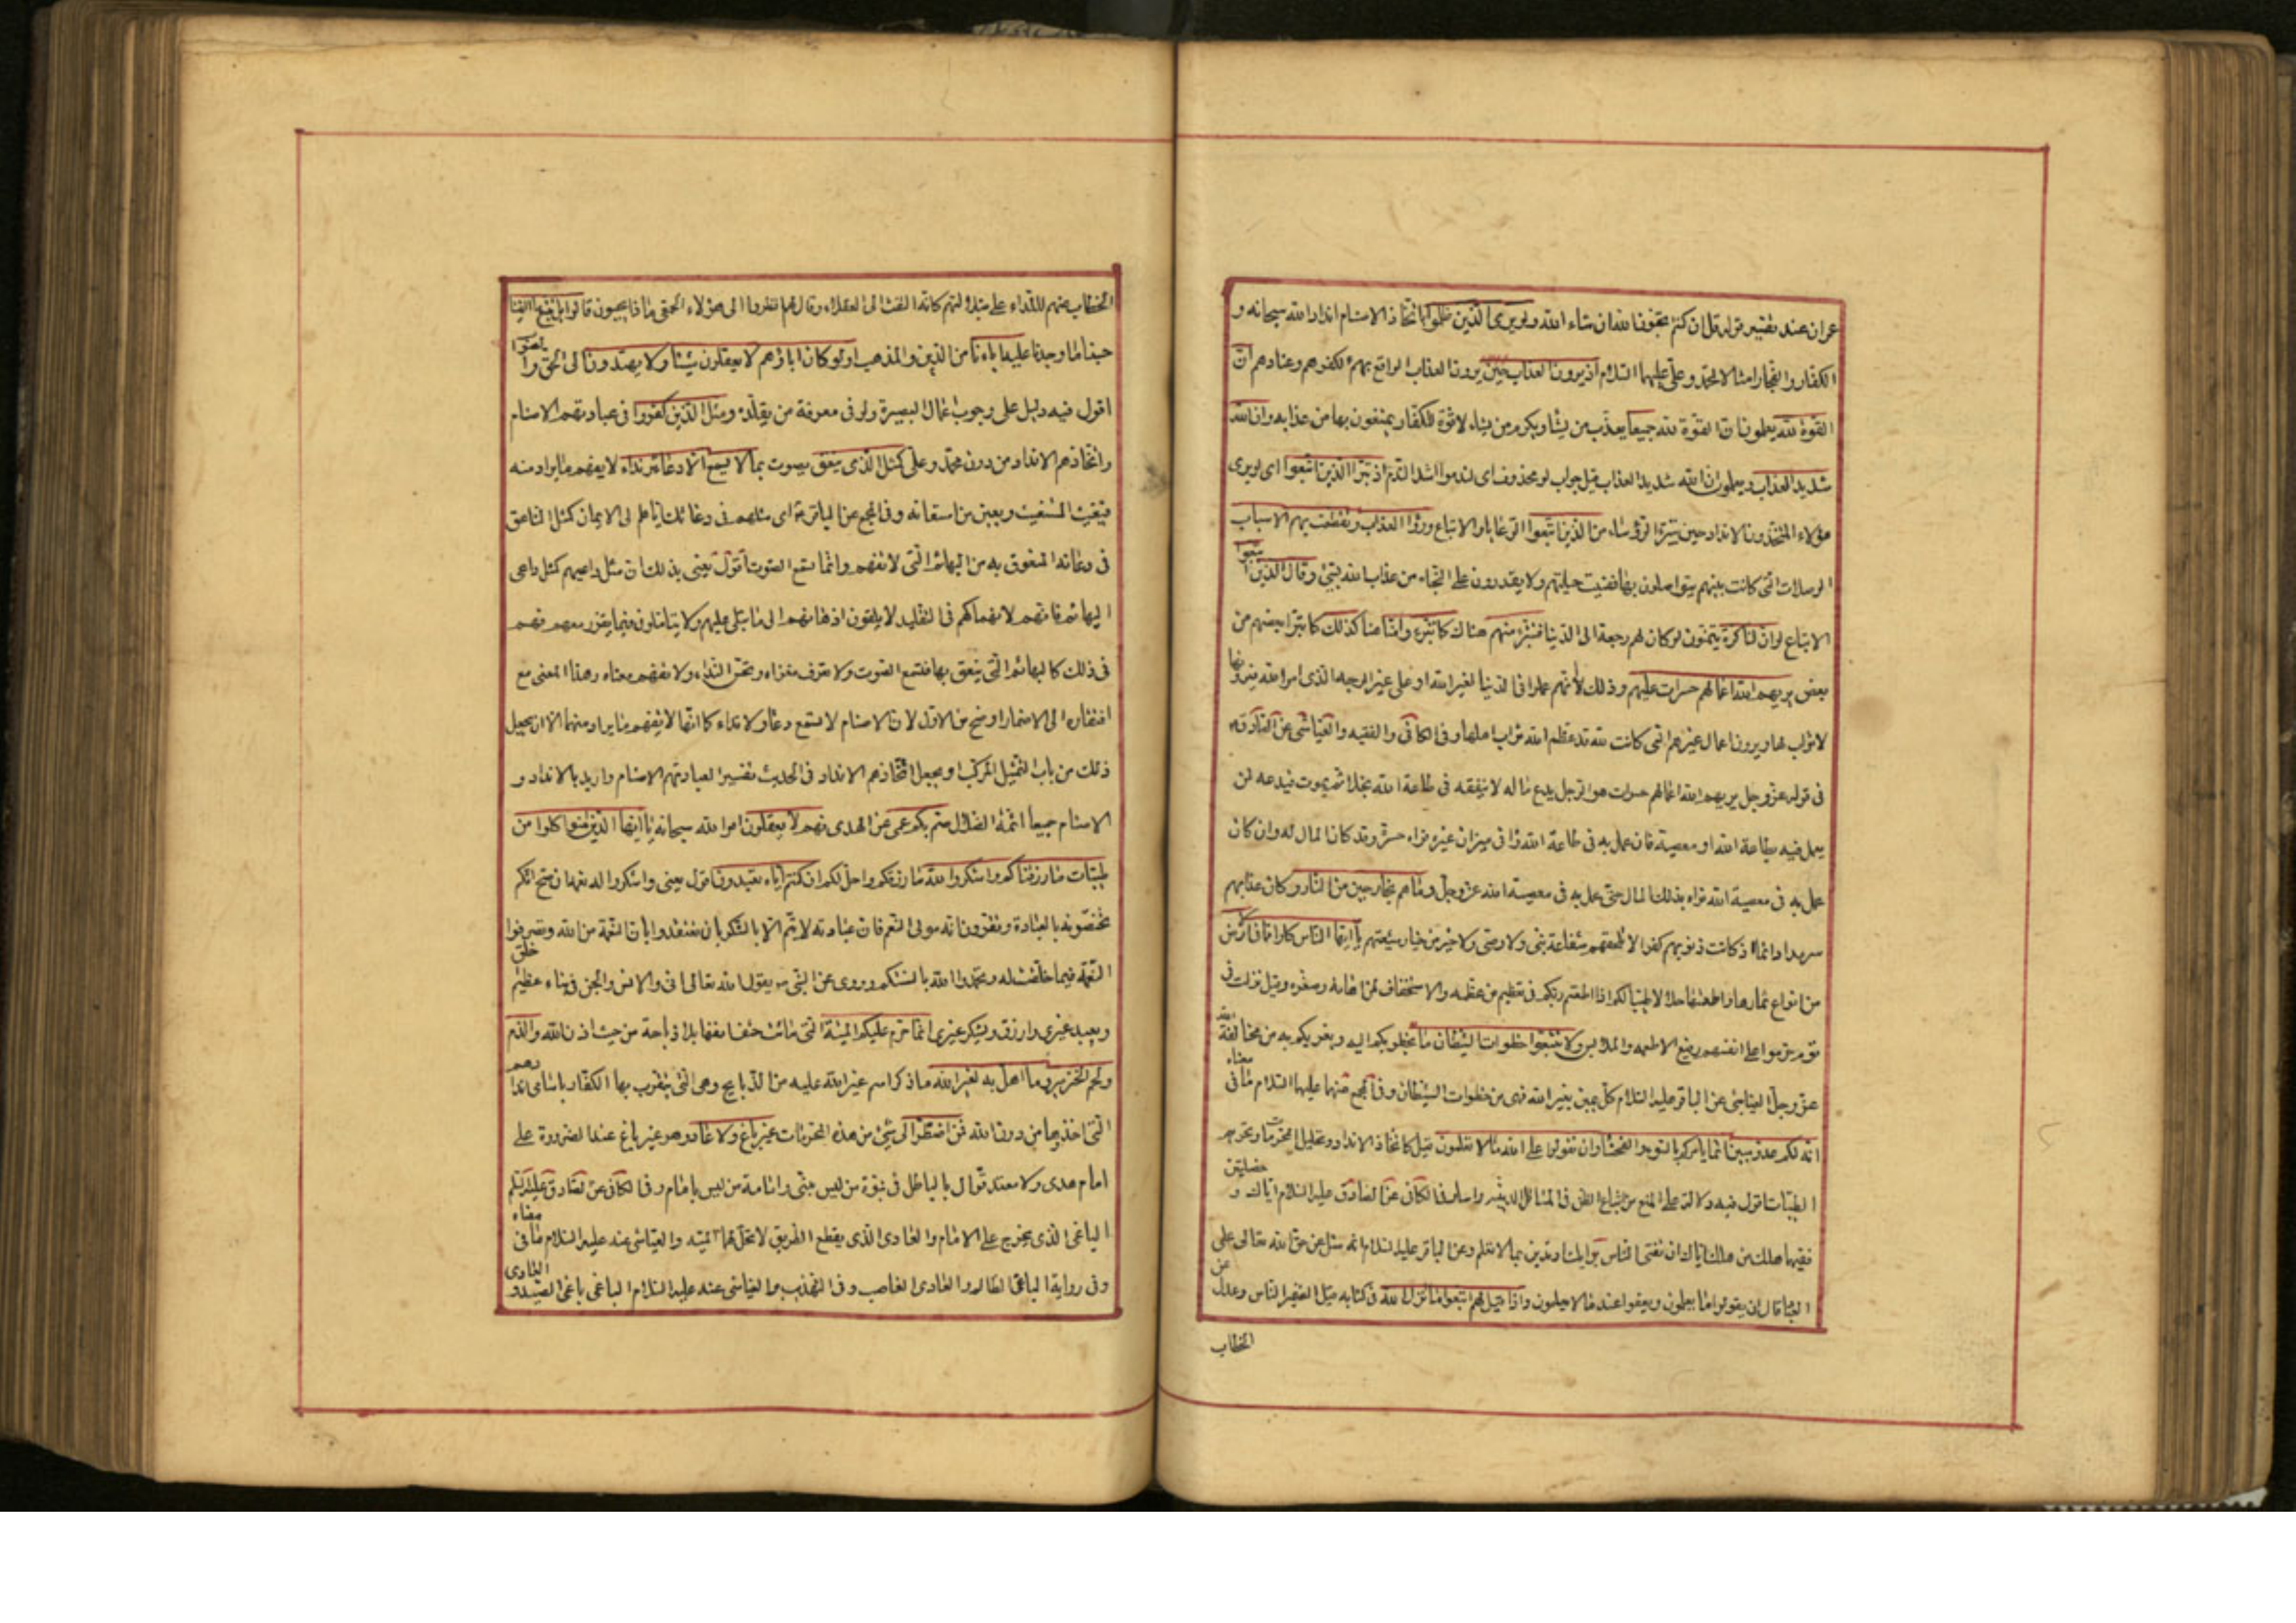 عمران عند تفسير قوله قل ان كنتم تحبون الله ان شاء الله ولو يرى الذين ظلموا باتخاذ الاصنام اندادا لله سبحانه و
الكفار والفجار امثالا لمحمد وعلى عليهما السلام اذ يرون العذاب حين يرون العذاب الواقع بهم لكفرهم وعنادهم ان
القوة لله يعلمون ان القوة لله جميعا يعذب من يشاء ويكرم من يشاء لا قوة للكفار يمتنعون بها من عذابه وان الله
شديد العذاب ويعلمون ان الله شديد العذاب قيل جواب لو محذوف اى لندموا اشد الندم اذ تبرا الذين اتبعوا اى لو يرى
هؤلاء المتخذون الانداد حين يتبرء الرؤساء من الذين اتبعوا الرعايا والاتباع وراوا العذاب وتقطعت بهم الاسباب
الوصلات التى كانت بينهم يتواصلون بها ففنيت حيلتهم ولا يقدرون على النجاة من عذاب الله بشئ وقال الذين اتبعوا
الاتباع لو ان لنا كرة يتمنون لو كان لهم رجعة الى الدنيا فنتبرء منهم هناك كما تبرءوا منا هنا كذلك كما تبرا بعضهم من
بعض يريهم الله اعمالهم حسرات عليهم وذلك لأنهم عملوا فى الدنيا لغير الله او على غير الوجه الذى امر الله فيرونها
لا ثواب لها ويرون اعمال غيرهم التى كانت لله قد عظم الله ثواب اهلها وفى الكافى والفقيه والعياشى عن الصادق
فى قوله عز وجل يريهم الله اعمالهم حسرات هو الرجل يدع ماله لا ينفقه فى طاعة الله بخلا ثم يموت فيدعه لمن
يعمل فيه بطاعة الله او معصيته فان عمل به فى طاعة الله راه فى ميزان غيره فراه حسرة وقد كان المال له وان كان
عمل به فى معصية الله قواه بذلك المال حتى عمل به فى معصية الله عز وجل وما هم بخارجين من النار وكان عذابهم
سرمدا دائما اذ كانت ذنوبهم كفرا لا تلحقهم شفاعة نبى ولا وصى ولا خير من خيار شيعتهم يا ايها الناس كلوا مما فى الارض
من انواع ثمارها واطعمتها حلالا طيبا لكم اذا اطعتم ربكم فى تعظيم من عظمه والاستخفاف لمن اهانه وصغره وقيل نزلت فى
قوم حرموا على انفسهم رفيع الاطعمة والملابس ولا تتبعوا خطوات الشيطان ما يخطو بكم اليه ويغريكم به من مخالفة الله
عز وجل العياشى عن الباقر عليه السلام كل يمين بغير الله فهى من خطوات الشيطان وفى المجمع عنهما عليهما السلام ما فى معناه
انه لكم عدو مبين انما يامركم بالسوء والفحشاء وان تقولوا على الله ما لا تعلمون قيل كاتخاذ الانداد وتحليل المحرمات وتحريم
الطيبات اقول فيه دلالة على المنع من اتباع الظن فى المسائل الدينية راسا وفى الكافى عن الصادق عليه السلام اياك و خصلتين
ففيهما هلك من هلك اياك ان تفتى الناس برايك او تدين بما لا تعلم وعن الباقر عليه السلام انه سئل عن حق الله تعالى على
العباد قال ان يقولوا ما يعلمون ويقفوا عند ما لا يعلمون واذا قيل لهم اتبعوا ما انزل الله فى كتابه قيل الضمير للناس وعدل عن
الخطاب
الخطاب عنهم للنداء على ضلالتهم كانه التفت الى العقلاء وقال لهم انظروا الى هؤلاء الحمقى ماذا يجيبون قالوا بل نتبع ما الفينا
حيفا ما وجدنا عليه اباءنا من الدين والمذهب اولو كان اباؤهم لا يعقلون شيئا ولا يهتدون الى الحق والصواب
اقول فيه دليل على وجوب اعمال البصيرة ولو فى معرفة من يقلده ومثل الذين كفروا فى عبادتهم الاصنام
واتخاذهم الانداد من دون محمد وعلى كمثل الذى ينعق يصوت بما لا يسمع الا دعاء ونداء لا يفهم ما يراد منه
فيغيث المستغيث ويعين من استعانه وفى المجمع عن الباقر اى مثلهم فى دعائك اياهم الى الايمان كمثل الناعق
فى دعائه المنعوق به من البهائم التى لا تفهم وانما تسمع الصوت اقول يعنى بذلك ان مثل داعيهم كمثل داعى
البهائم فانهم لانهماكهم فى التقليد لا يلقون اذهانهم الى ما يتلى عليهم ولا يتاملون فيما يقرر معهم فهم
فى ذلك كالبهائم التى ينعق بها فتسمع الصوت ولا تعرف مغزاه وتحس النداء ولا تفهم معناه وهذا المعنى مع
افتقاره الى الاضمار اوضح من الاول لان الاصنام لا تسمع دعاء ولا نداء كما انها لا تفهم ما يراد منها الا ان يجعل
ذلك من باب التمثيل المركب او يجعل اتخاذهم الانداد فى الحديث تفسيرا لعبادتهم الاصنام واريد بالانداد و
الاصنام جميعا ائمة الضلال صم بكم عمى عن الهدى فهم لا يعقلون امر الله سبحانه يا ايها الذين امنوا كلوا من
طيبات ما رزقناكم واشكروا لله ما رزقكم واحل لكم ان كنتم اياه تعبدون اقول يعنى واشكروا له نعمه ان صح انكم
تخصونه بالعبادة وتقرون انه مولى النعم فان عبادته لا تتم الا بالشكر بان تعتقدوا بان النعمة من الله وتصرفوا
النعمة فيما خلقت له وتحمدوا الله بالسنتكم وروى عن النبى ص يقول الله تعالى انى والانس والجن فى نباء عظيم خلق
ويعبد غيرى وارزق ويشكر غيرى انما حرم عليكم الميتة التى ماتت حتف انفها بلا ذباحة من حيث اذن الله والدم
ولحم الخنزير وما اهل به لغير الله ما ذكر اسم غير الله عليه من الذبايح وهى التى يتقرب بها الكفار باسامى اندادهم
التى اتخذوها من دون الله فمن اضطر الى شئ من هذه المحرمات غير باغ ولا عاد وهو غير باغ عند الضرورة على
امام هدى ولا معتد قوال بالباطل فى نبوة من ليس بنبى وامامة من ليس بامام وفى الكافى عن الصادق عليه السلم
الباغى الذى يخرج على الامام والعادى الذى يقطع الطريق لا تحل لهما الميتة والعياشى عنه عليه السلام ما فى معناه
وفى رواية الباغى الظالم والعادى الغاصب وفى التهذيب والعياشى عنه عليه السلام الباغى باغى الصيد و العادى